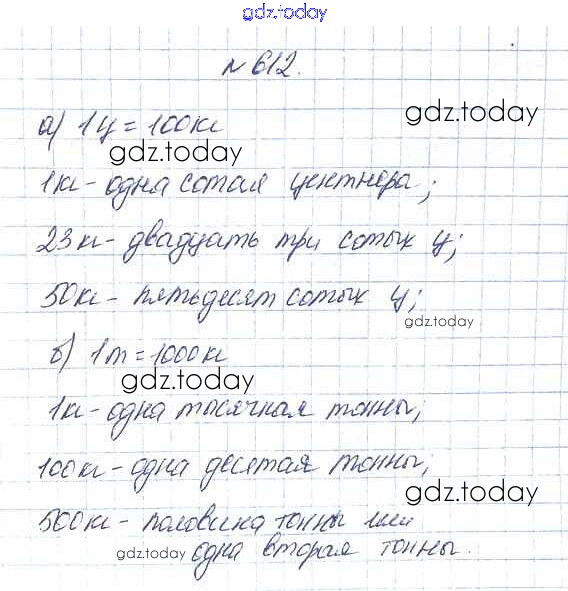 gdz.today
№ 612.
а) 1ц = 100кг
gdz.today
gdz.today
1кг - одна сотая центнера;
23кг - двадцать три сотых ц;
50кг - пятьдесят сотых ц;
gdz.today
б) 1т = 1000кг
gdz.today
1кг - одна тысячная тонны;
100кг - одна десятая тонны;
gdz.today
500кг - половина тонны или
gdz.today
одна вторая тонны.